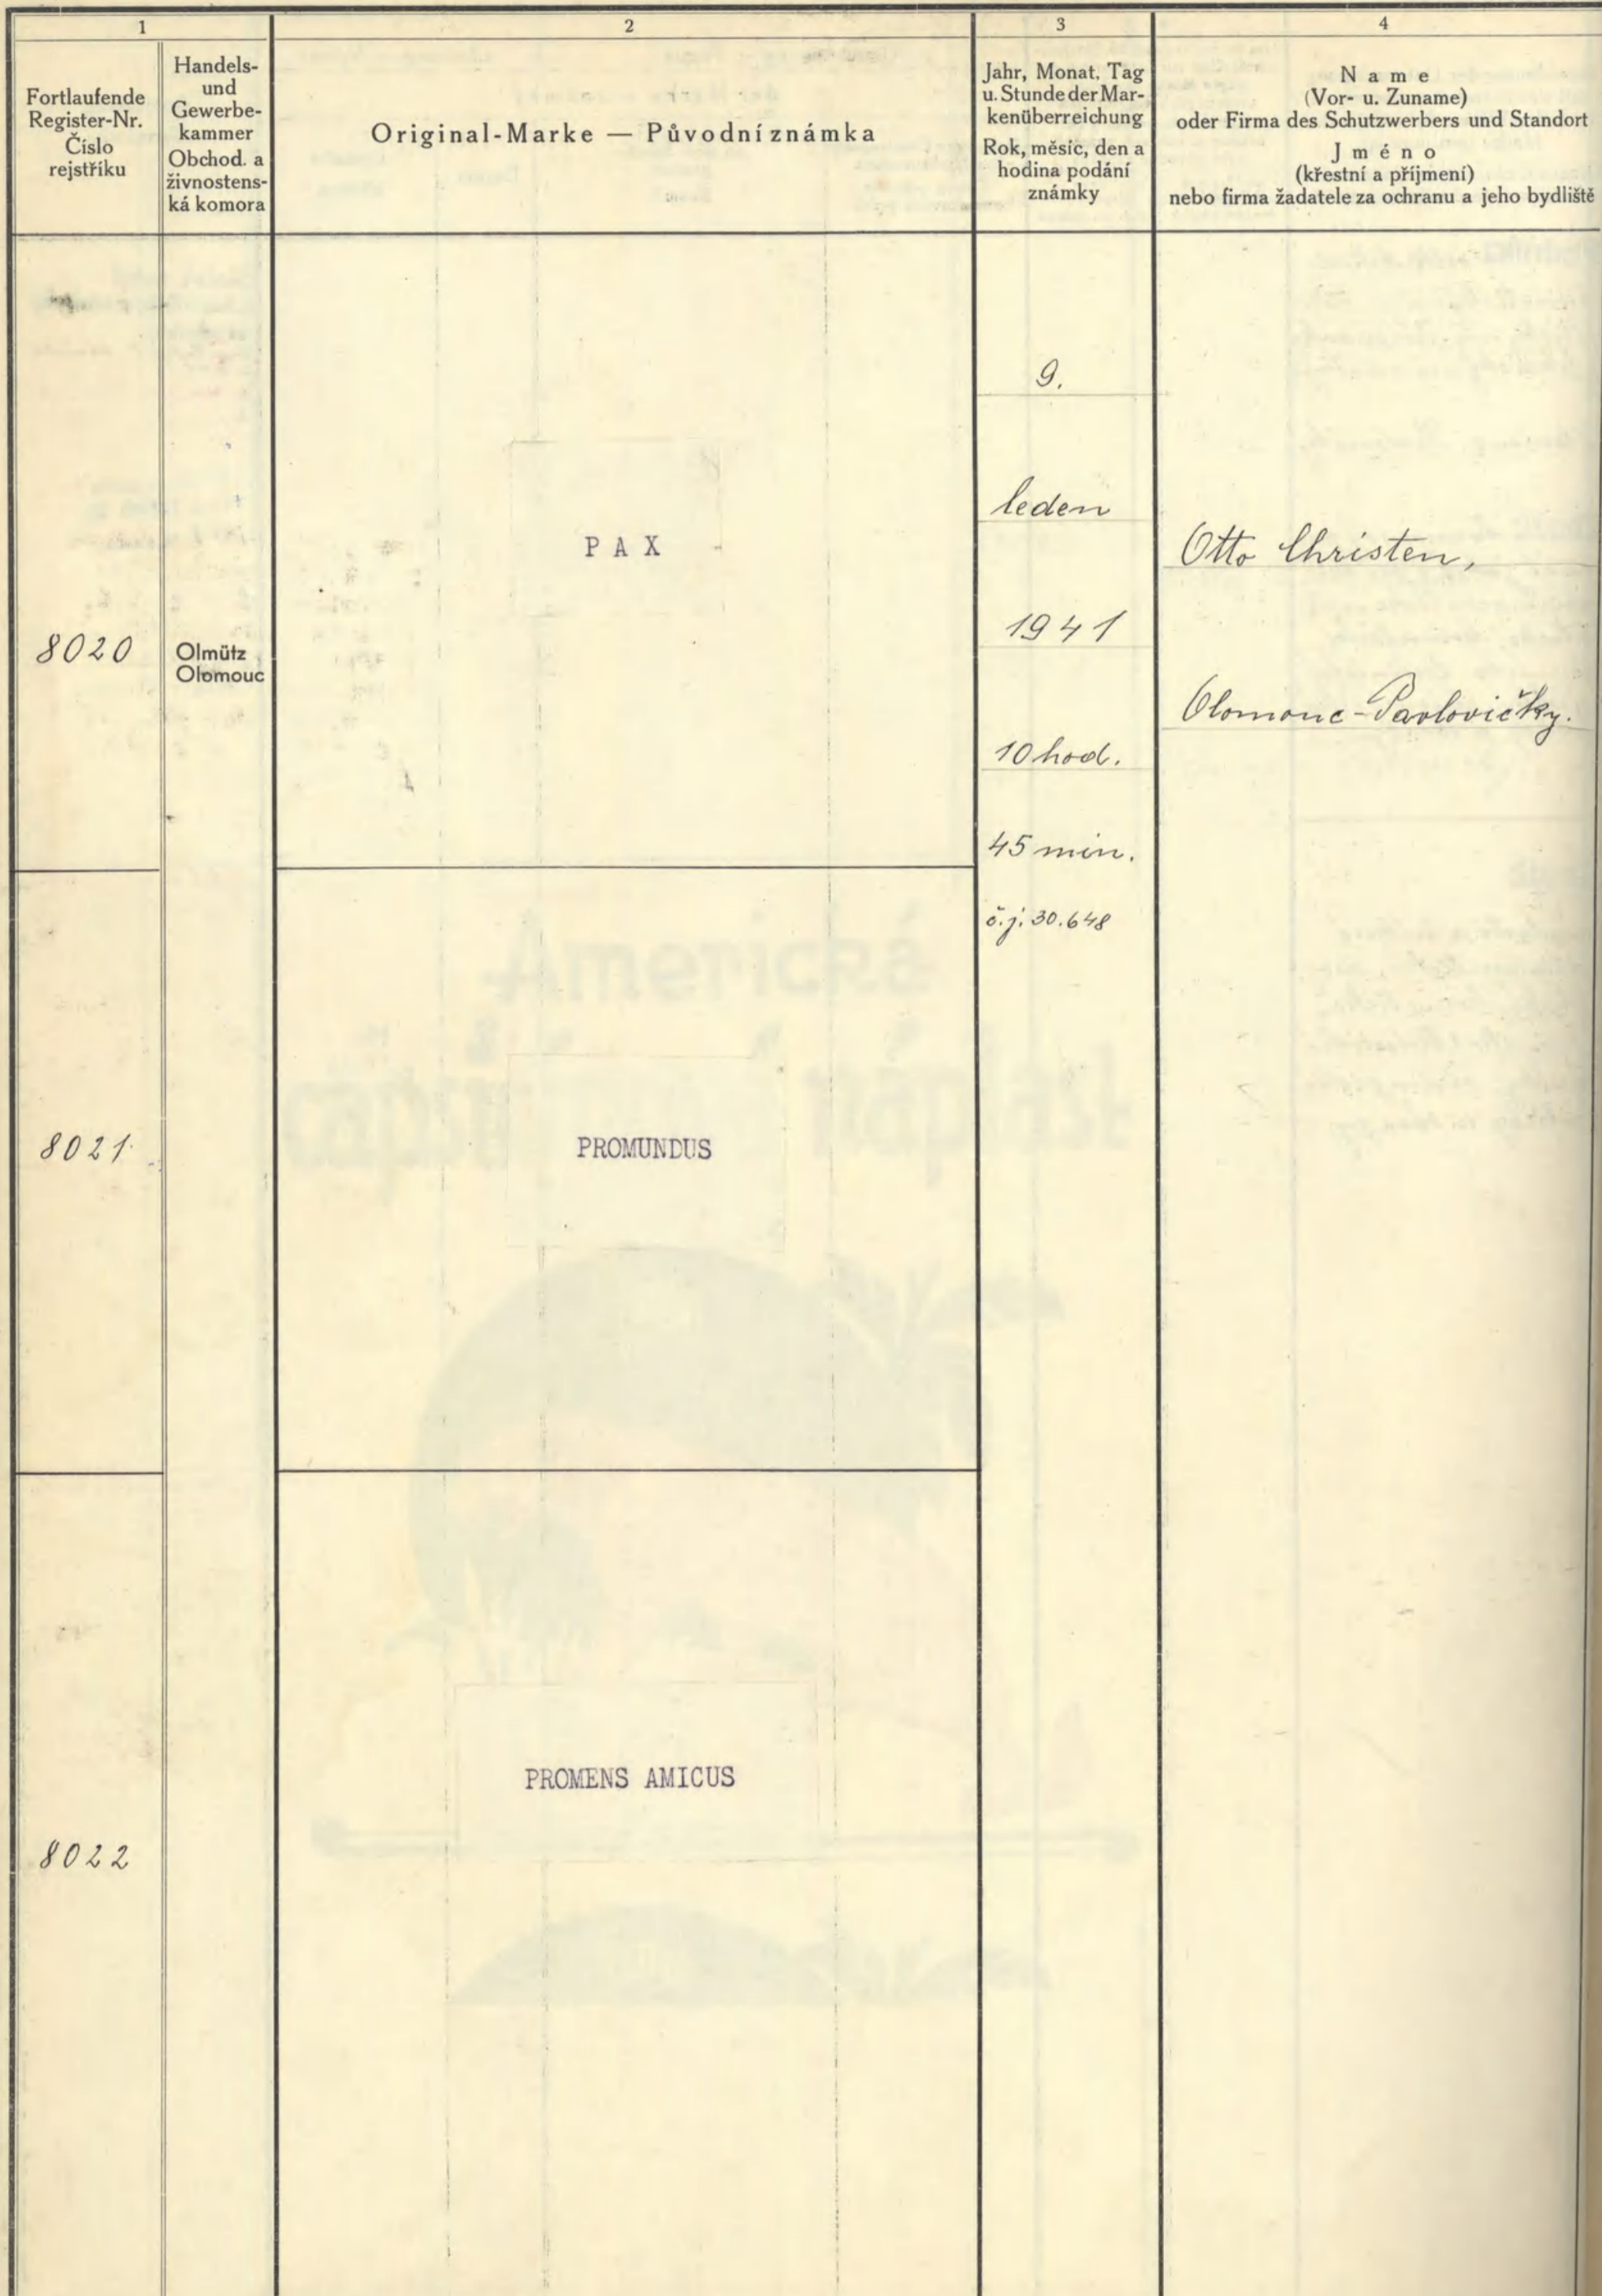 1
2
3
4
Fortlaufende
Register-Nr.
Číslo
rejstříku
Handels-
und
Gewerbe-
kammer
Obchod. a
živnostens-
ká komora
Original-Marke — Původní známka
Jahr, Monat, Tag
u. Stunde der Mar-
kenüberreichung
Rok, měsíc, den a
hodina podání
známky
Name
(Vor- u. Zuname)
oder Firma des Schutzwerbers und Standort
Jméno
(křestní a příjmení)
nebo firma žadatele za ochranu a jeho bydliště
8020
Olmütz
Olomouc
PAX
9.
leden
1941
10 hod.
45 min.
č.j. 30.648
Otto Christen,
Olomouc-Pavlovičky.
8021
PROMUNDUS
8022
PROMENS AMICUS
Americká
náplast